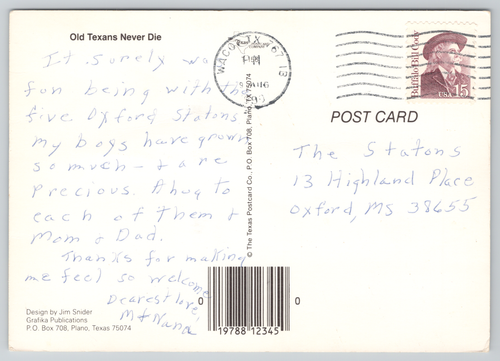 Old Texans Never Die
It surely was
fun being with the
five Oxford Statons
my boys have grown
so much - & are
precious. A hug to
each of them &
Mom & Dad.
Thanks for making
me feel so welcome
Dearest love,
Nana
Design by Jim Snider
Grafika Publications
P.O. Box 708, Plano, Texas 75074
© The Texas Postcard Co., P.O. Box 708, Plano, TX 75074
WACO, TX 767 13
PM
Buffalo Bill Cody
USA 15
POST CARD
The Statons
13 Highland Place
Oxford, MS 38655
0 0
19788 12345